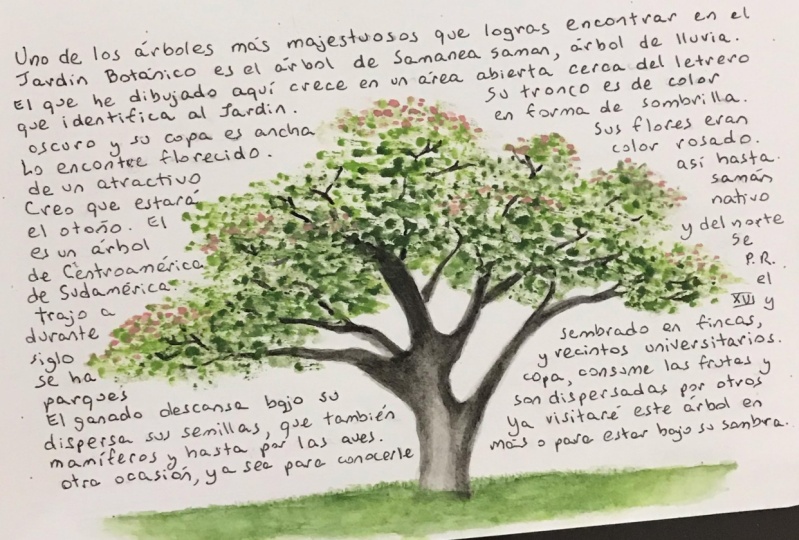 Uno de los árboles más majestuosos que logras encontrar en el
Jardín Botánico es el árbol de Samanea saman, árbol de lluvia.
El que he dibujado aquí crece en un área abierta cerca del letrero
que identifica al Jardín. Su tronco es de color
oscuro y su copa es ancha en forma de sombrilla.
Lo encontré florecido. Sus flores eran
de un atractivo color rosado.
Creo que estará así hasta.
el otoño. El samán
es un árbol nativo
de Centroamérica y del norte
de Sudamérica. Se
trajo a P.R.
durante el
siglo XVI y
se ha sembrado en fincas,
parques y recintos universitarios.
El ganado descansa bajo su copa, consume las frutas y
dispersa sus semillas, que también son dispersadas por otros
mamíferos y hasta por las aves. Ya visitaré este árbol en
otra ocasión, ya sea para conocerle más o para estar bajo su sombra.